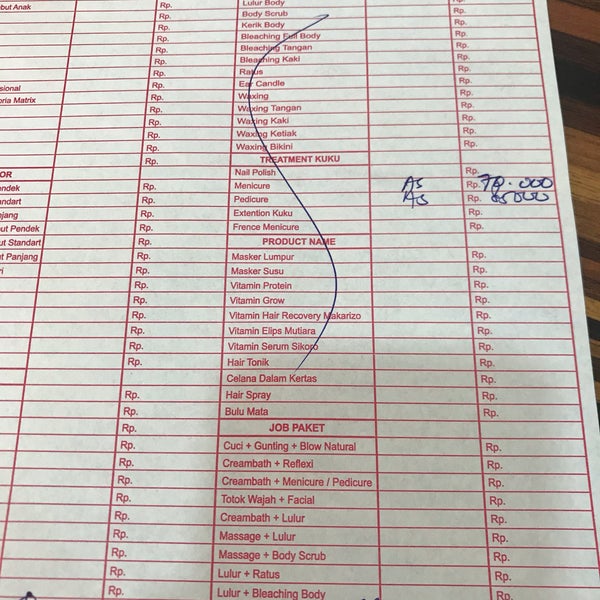 but Anak Rp. Lulur Body Rp.
Rp. Body Scrub Rp.
Rp. Kerik Body Rp.
Rp. Bleaching Full Body Rp.
Rp. Bleaching Tangan Rp.
Rp. Bleaching Kaki Rp.
Rp. Ratus Rp.
sional Rp. Ear Candle Rp.
oria Matrix Rp. Waxing Rp.
Rp. Waxing Tangan Rp.
Rp. Waxing Kaki Rp.
Rp. Waxing Ketiak Rp.
Rp. Waxing Bikini Rp.
Rp. TREATMENT KUKU
OR Nail Polish Rp.
endek Rp. Menicure As Rp.
andart Rp. Pedicure As Rp. 85000
njang Rp. Extention Kuku Rp.
but Pendek Rp. Frence Menicure Rp.
ut Standart Rp. PRODUCT NAME
t Panjang Rp. Masker Lumpur Rp.
ri Rp. Masker Susu Rp.
Rp. Vitamin Protein Rp.
Rp. Vitamin Grow Rp.
Rp. Vitamin Hair Recovery Makarizo Rp.
Rp. Vitamin Elips Mutiara Rp.
Rp. Vitamin Serum Sikoro Rp.
Rp. Hair Tonik Rp.
Celana Dalam Kertas Rp.
Rp. Hair Spray Rp.
Rp. Bulu Mata Rp.
Rp. JOB PAKET
Rp. Cuci + Gunting + Blow Natural Rp.
Rp. Creambath + Reflexi Rp.
Rp. Creambath + Menicure / Pedicure Rp.
Rp. Totok Wajah + Facial Rp.
Rp. Creambath + Lulur Rp.
Rp. Massage + Lulur Rp.
Rp. Massage + Body Scrub Rp.
Rp. Lulur + Ratus Rp.
Lulur + Bleaching Body Rp.